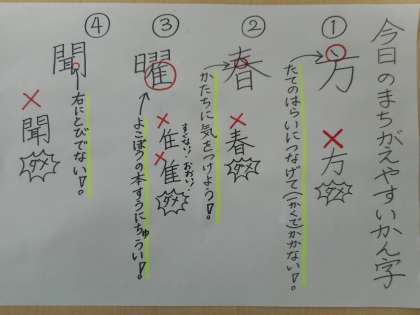 今日のまちがえやすいかん字
①
方
たてのはらいにつなげて(一かくで)かかない!。
方
ダメ
②
春
かたちに気をつけよう!。
春
ダメ
③
曜
よこぼうの本すうにちゅうい!。
すくない!
おおい!
ダメ
④
聞
右にとびでない!。
聞
ダメ